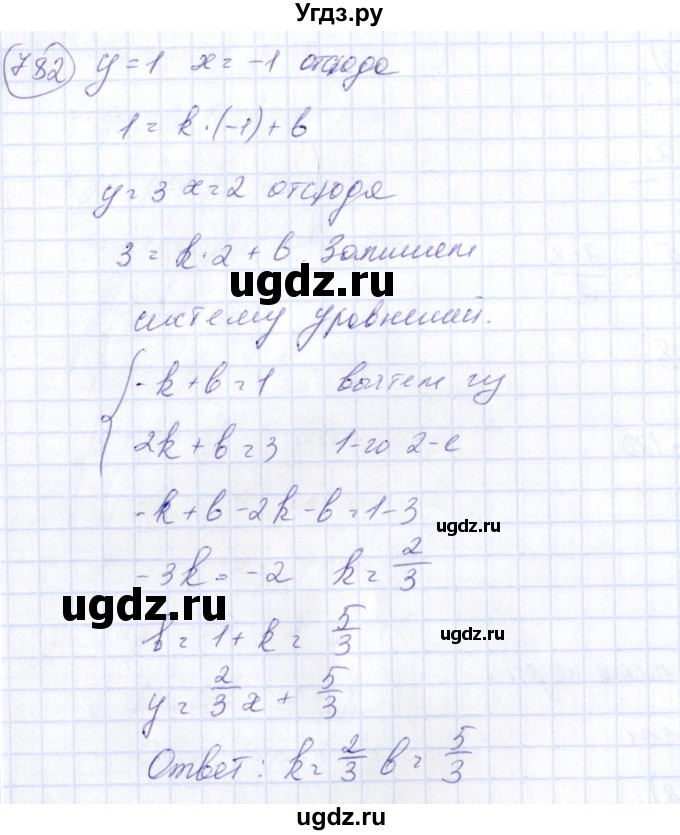 Угдз.ру
782 y = 1 x = -1 отсюда
1 = k·(-1) + b
y = 3 x = 2 отсюда
3 = k·2 + b Запишем
ugdz.ru
систему уровнений.
-k + b = 1 вычтем из
2k + b = 3 1-го 2-е
-k + b - 2k - b = 1 - 3
ugdz.ru
-3k = -2 k = 2/3
ugdz.ru
b = 1 + k = 5/3
ugdz.ru
y = 2/3 x + 5/3
Ответ: k = 2/3 b = 5/3
ugdz.ru
ugdz.ru